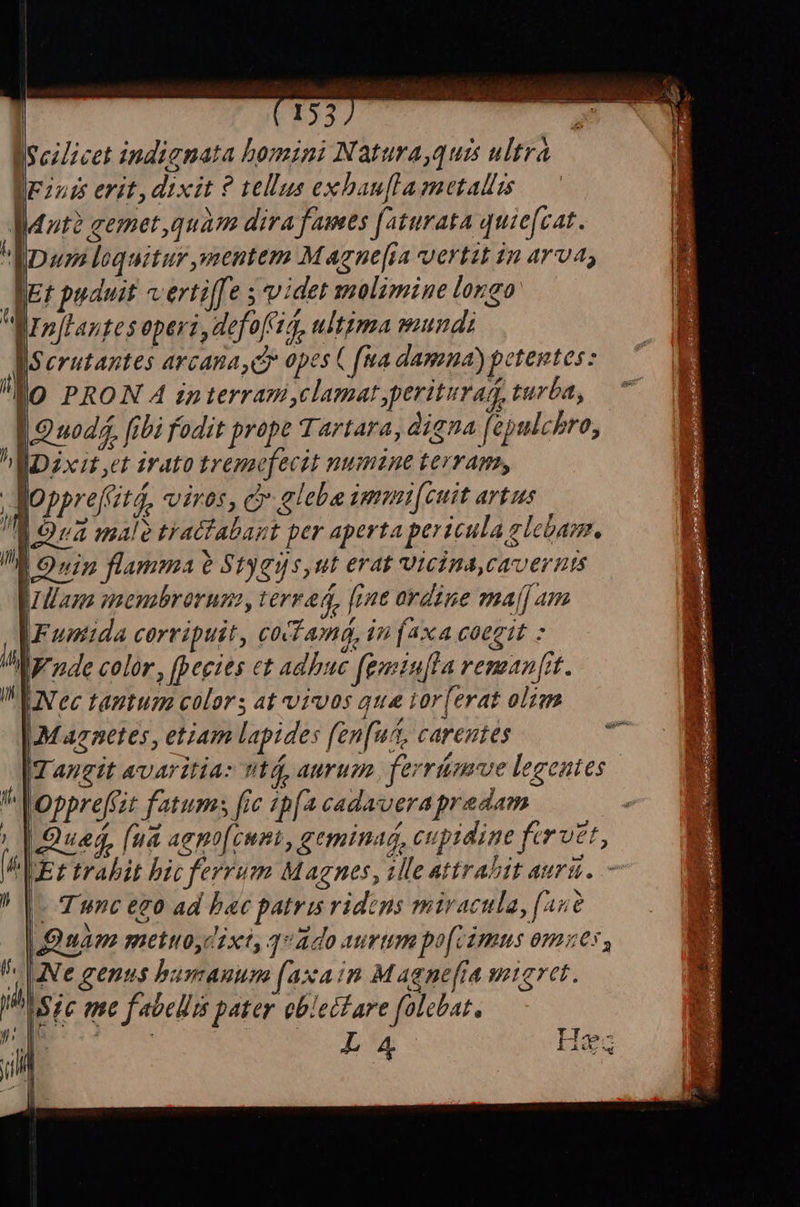 (153)
Scilicet indignata homini Natura, quis ultrà
Finis erit, dixit? tellus exhausta metallis
Antè gemet, quàm dira fames saturata quiescat.
Dum loquitur, mentem Magnesia vertit in arva,
Et puduit vertisse; videt molimine longo
Instantes operi, defossáq; ultima mundi
Scrutantes arcana, & opes (sua damna) petentes:
O PRONA in terram, clamat, perituraq; turba,
Quodq; sibi fodit prope Tartara, digna sepulchro,
Dixit, et irato tremefecit numine terram,
Oppressitq; viros, & gleba immiscuit artus
Quâ malè tractabant per aperta pericula glebam.
Quin flamma è Stygijs, ut erat vicina, cavernis
Illam membrorum, terraeq; sine ordine massam
Fumida corripuit, coctamq; in saxa coegit:
Vnde color, species et adhuc semiusta remansit.
Nec tantum color; at vivos quae torserat olim
Magnetes, etiam lapides sensuq; carentes
Tangit avaritia: utq; aurum ferrúmve legentes
Oppressit fatum; sic ipsa cadavera praedam
Quaeq; suâ agnoscunt, geminaq; cupidine fervēt,
Et trahit hic ferrum Magnes, ille attrahit aurū.
Tunc ego ad haec patris ridens miracula, sanè
Quàm metuo, dixi, quādo aurum poscimus omnes,
Ne genus humanum saxa in Magnesia migret.
Sic me fabellis pater oblectare solebat.
L 4 Haec